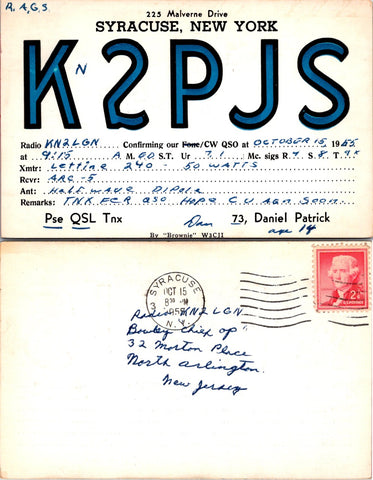 R, A, G, S.
225 Malverne Drive
SYRACUSE, NEW YORK
KN2PJS
Radio KN2LGN Confirming our Fone/CW QSO at OCTOBER 15 1955
at 9:15 A M. E.D.S.T. Ur 7.1 Mc. sigs R 9 S. 8 T. 9x
Xmtr: Lettine 240 - 50 WATTS
Rcvr: ARC-5
Ant: HALF WAVE DIPOLE
Remarks: TNX FER QSO HOPE C U AGN SOON.
Pse QSL Tnx Dan 73, Daniel Patrick
age 14
By "Brownie" W3CJI
SYRACUSE
OCT 15
8 30 PM
1955
N.Y.
3
2¢
Radio KN2LGN
"Chief op"
32 Morton Place
North Arlington,
New Jersey